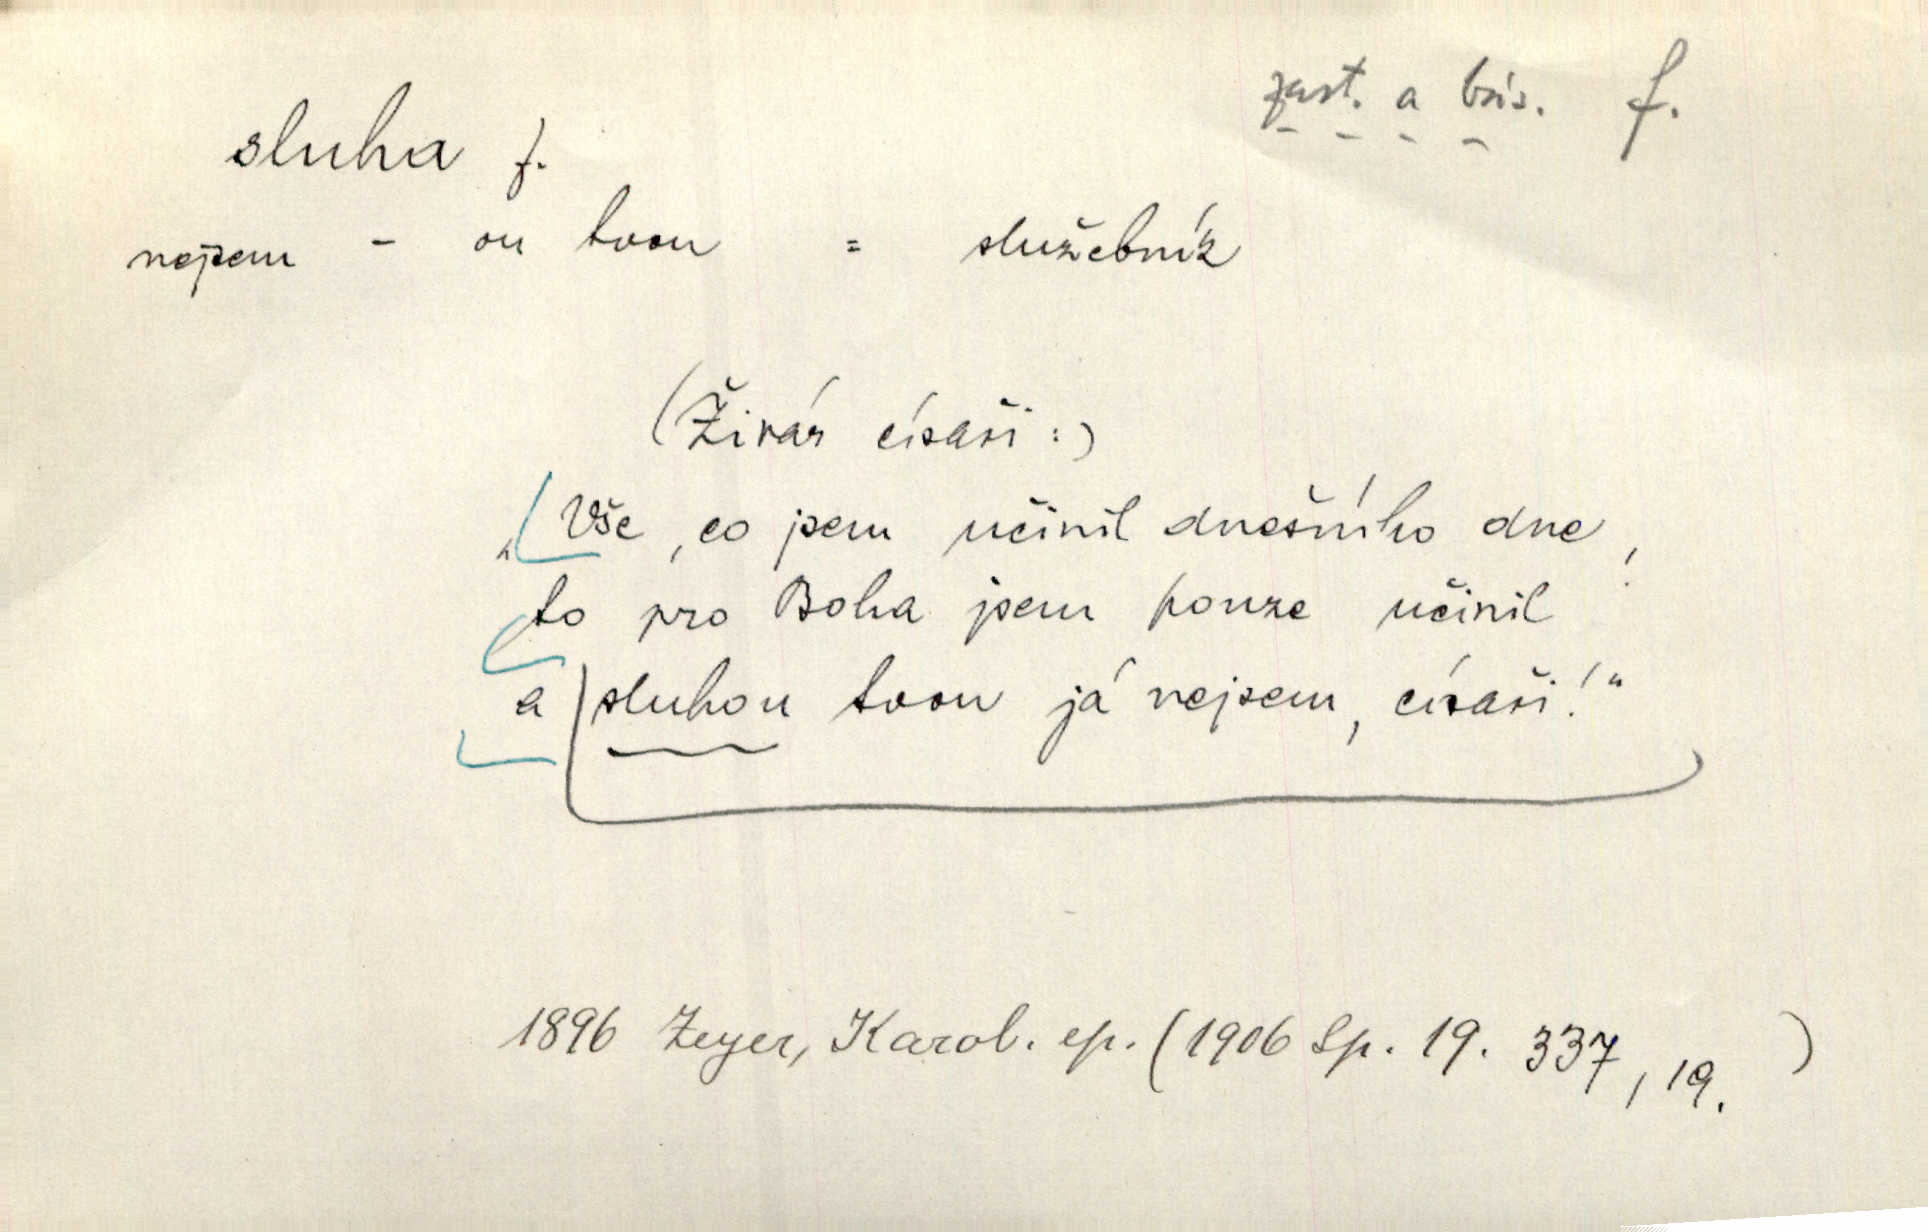 zast. a bás. f.
sluha f.
nejsem - ou tvou = služebník
(Živár císaři:)
„Vše, co jsem učinil dnešního dne,
to pro Boha jsem pouze učinil
a sluhou tvou já nejsem, císaři!“
1896 Zeyer, Karol. ep. (1906 Sp. 19. 337, 19.)